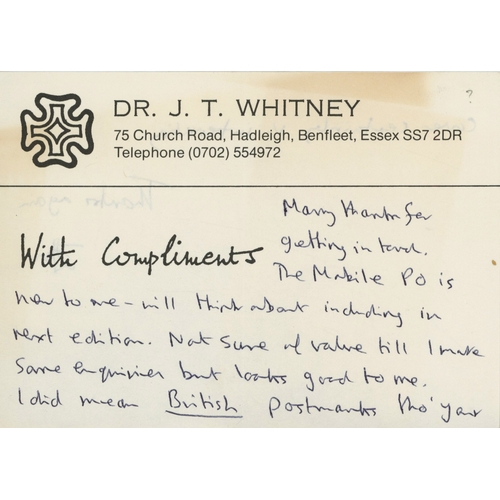 ?
DR. J. T. WHITNEY
75 Church Road, Hadleigh, Benfleet, Essex SS7 2DR
Telephone (0702) 554972
With Compliments
Many thanks for
getting in touch.
The Mobile PO is
new to me - will think about including in
next edition. Not sure of value till I make
some enquiries but looks good to me.
I did mean British postmarks tho' your
Thanks again